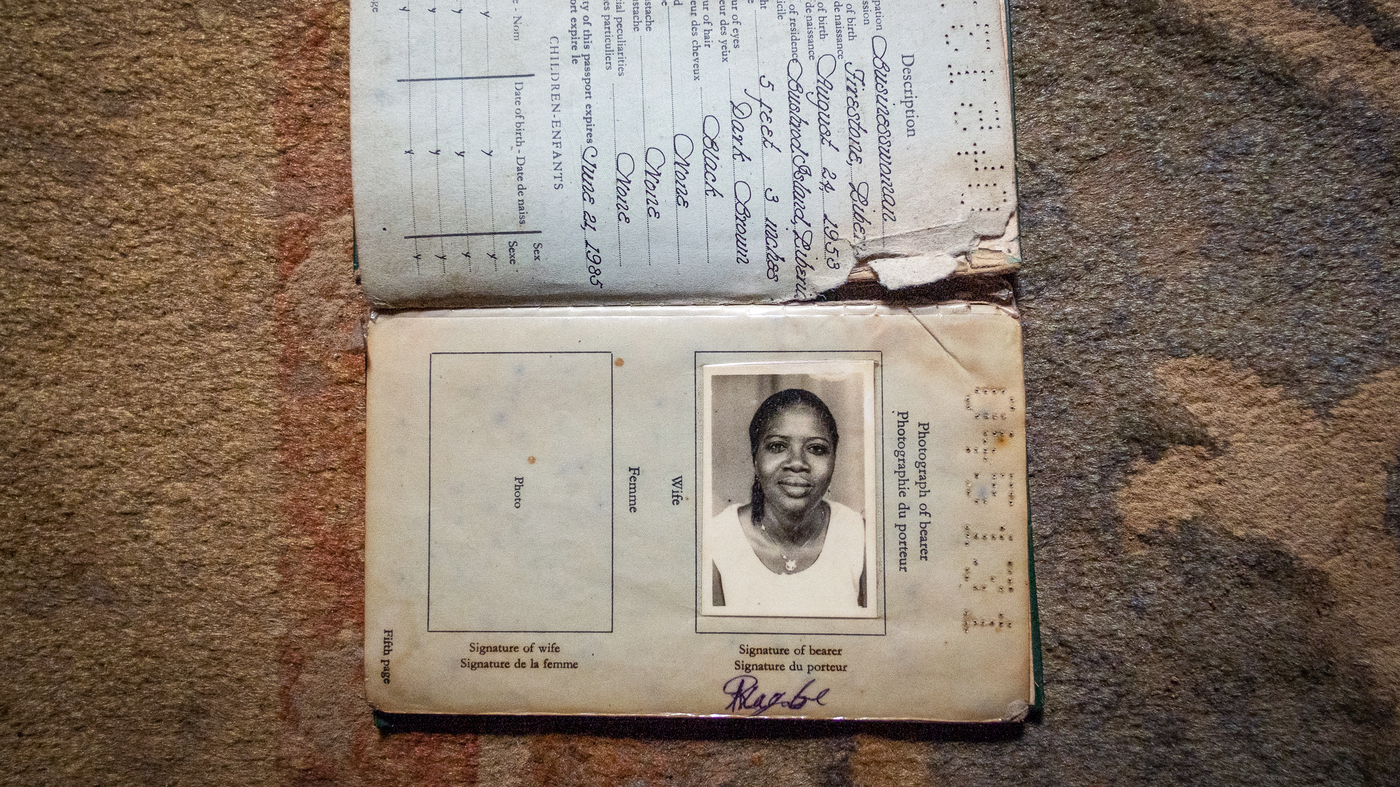 Description
pation Businesswoman
ssion
of birth Firestone,
de naissance
of birth August 24, 1953
de naissance
of residence Bushrod Island, Liberia
icile
ht 5 feet 3 inches
ur of eyes Dark Brown
eur des yeux
ur of hair Black
eur des cheveux
None
stache None
ustache
ial peculiarities None
es particuliers
ty of this passport expires June 21, 1985
ort expire le
CHILDREN-ENFANTS
e - Nom Date of birth - Date de naiss. Sex
Sexe
age
Photograph of bearer
Photographie du porteur
Wife
Femme
Photo
Signature of bearer
Signature du porteur
Signature of wife
Signature de la femme
Fifth page